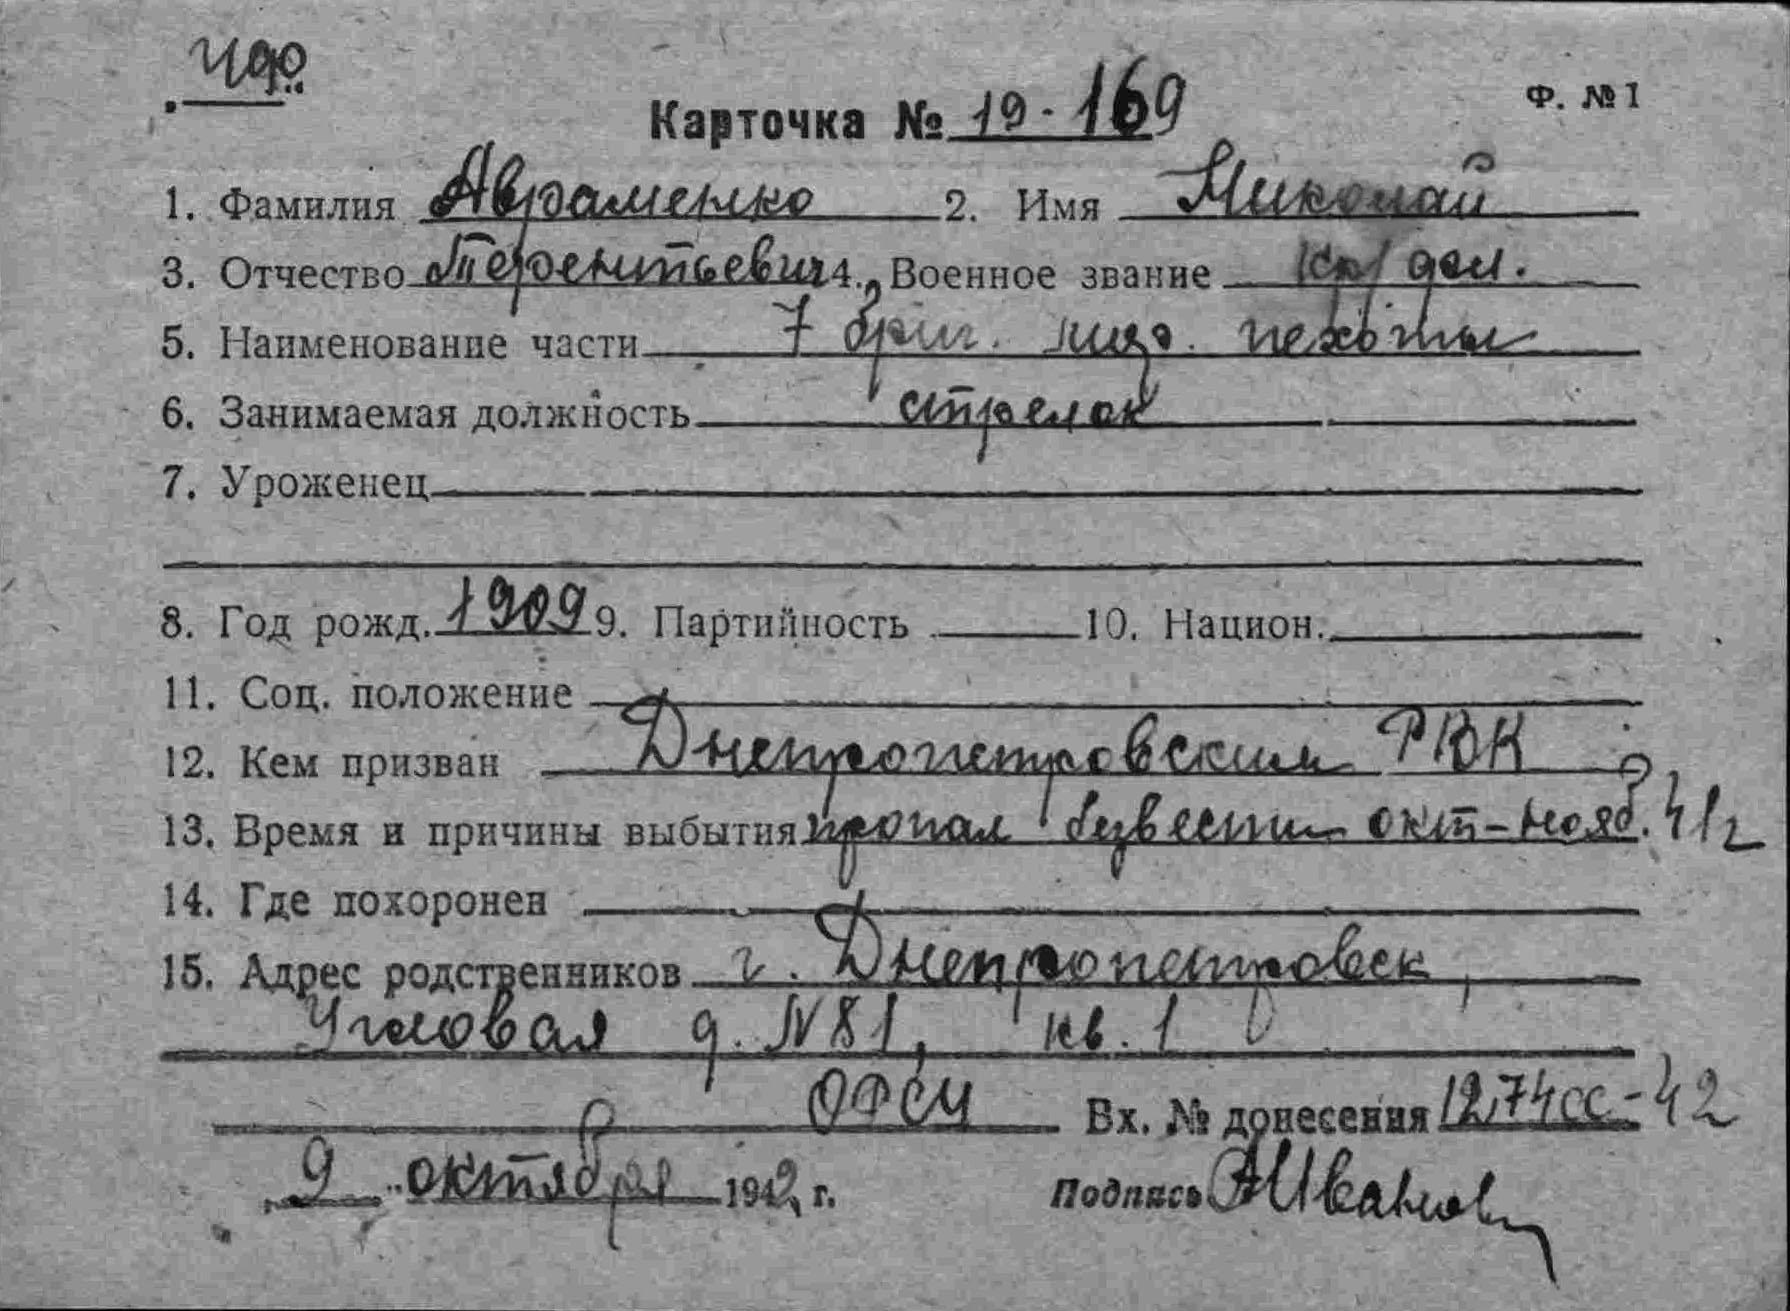 Ф. № 1
Карточка № 19-169
1. Фамилия Авраменко 2. Имя Николай
3. Отчество Терентьевич 4. Военное звание кр/арм.
5. Наименование части 7 бриг. морс. пехоты
6. Занимаемая должность стрелок
7. Уроженец
8. Год рожд. 1909 9. Партийность 10. Национ.
11. Соц. положение
12. Кем призван Днепропетровским РВК
13. Время и причины выбытия пропал безвести окт-нояб. 41 г
14. Где похоронен
15. Адрес родственников г. Днепропетровск,
Угловая д. N 81, кв. 1
Вх. № донесения 1274сс-42
9 октября 1942 г. Подпись АИванов